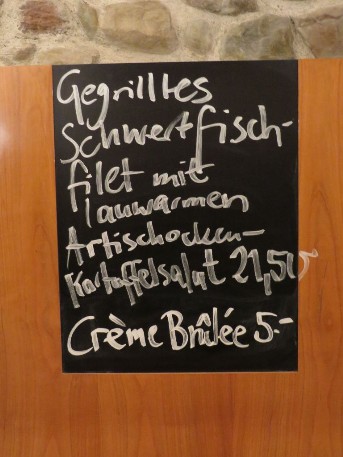 Gegrilltes
Schwertfisch-
filet mit
lauwarmen
Artischocken-
Kartoffelsalat 21,50
Crème Brûlée 5.-